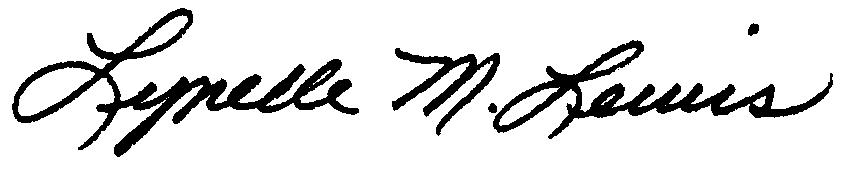 Lynelle M. Lewis